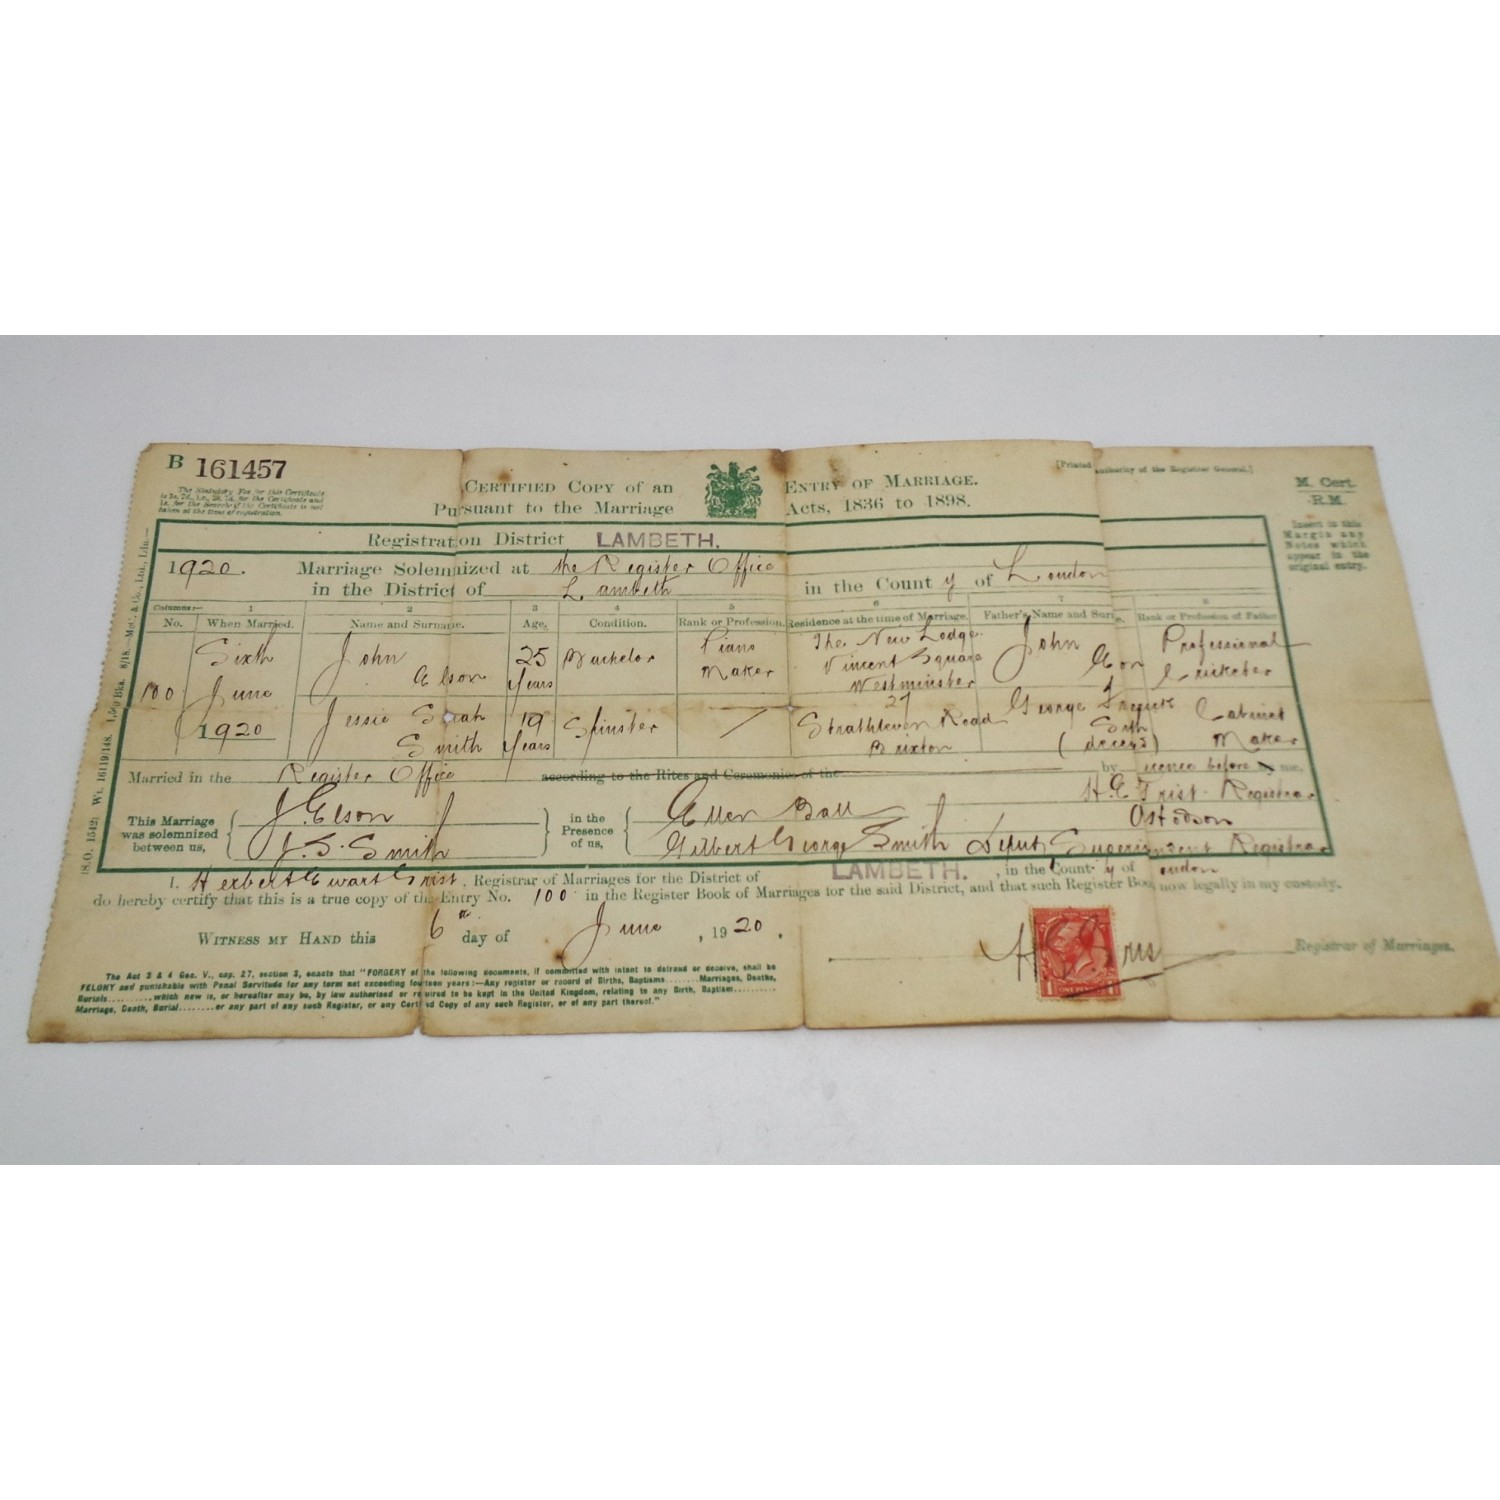 B 161457
The Statutory Fee for this Certificate
is 2s. 7d., i.e., 2s. 7d. for the Certificate and
1s. for the Search if the Certificate is not
taken at the time of registration.
CERTIFIED COPY OF AN ENTRY OF MARRIAGE.
Pursuant to the Marriage Acts, 1836 to 1898.
[Printed authority of the Registrar General.]
M. Cert.
R.M.
Insert in this
Margin any
Notes which
appear in the
original entry.
Registration District LAMBETH.
1920. Marriage Solemnized at the Register Office
in the District of Lambeth in the County of London
Columns:— 1 2 3 4 5 6 7 8
No. When Married. Name and Surname. Age. Condition. Rank or Profession. Residence at the time of Marriage. Father's Name and Surname. Rank or Profession of Father
100 Sixth June 1920
John Elson 25 years Bachelor Piano Maker The New Lodge Vincent Square Westminster John Professional
Jessie Sarah Smith 19 years Spinster / 27 Strathleven Road Brixton George (deceased) Cabinet Maker
Married in the Register Office according to the Rites and Ceremonies of the by before me,
This Marriage was solemnized between us, J. Elson
J. S. Smith
in the Presence of us, Ellen Ball
Gilbert George Smith
H. E. Grist Registrar
Deputy Superintendent Registrar
I, Herbert Ewart Grist, Registrar of Marriages for the District of LAMBETH. , in the County of London
do hereby certify that this is a true copy of the Entry No. 100 in the Register Book of Marriages for the said District, and that such Register Book now legally in my custody.
WITNESS MY HAND this 6th day of June , 1920 .
Registrar of Marriages.
1 ONE PENNY 1
The Act 3 & 4 Geo. V., cap. 27, section 3, enacts that "FORGERY of the following documents, if committed with intent to defraud or deceive, shall be
FELONY and punishable with Penal Servitude for any term not exceeding fourteen years:—Any register or record of Births, Baptisms........Marriages, Deaths,
Burials.........which now is, or hereafter may be, by law authorised or required to be kept in the United Kingdom, relating to any Birth, Baptism.........
Marriage, Death, Burial........or any part of any such Register, or any Certified Copy of any such Register, or of any part thereof."